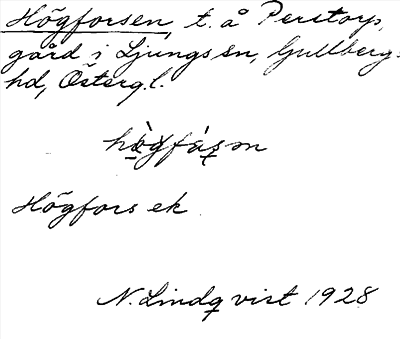 Högforsen, t. å Perstorp,
gård i Ljungs sn, Gullbergs
hd, Österg. l.
högfásm
Högfors ek
N. Lindqvist 1928